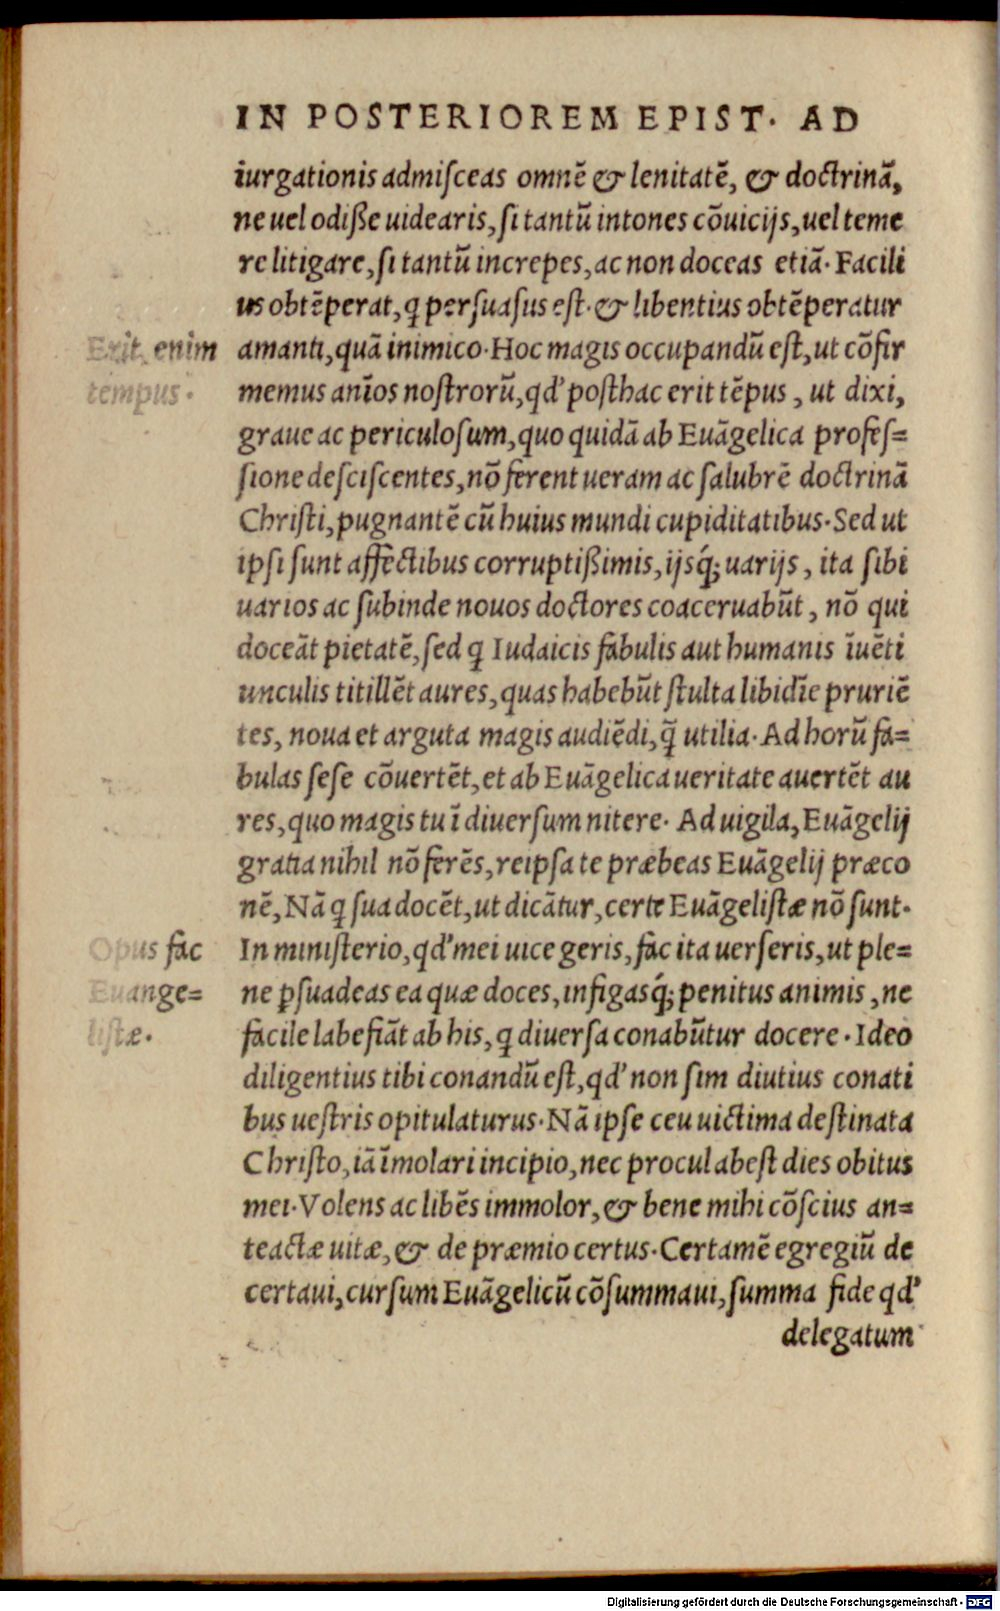 IN POSTERIOREM EPIST· AD
iurgationis admiſceas omnẽ & lenitatẽ, & doctrinã,
ne uel odiße uidearis, ſi tantũ intones cõuicijs, uel teme
re litigare, ſi tantũ increpes, ac non doceas etiã· Facili
us obtẽperat, ꝗ perſuaſus eſt· & libentius obtẽperatur
Erit enim
tempus·
amanti, quã inimico· Hoc magis occupandũ eſt, ut cõfir
memus anĩos noſtrorũ, qd' poſthac erit tẽpus, ut dixi,
graue ac periculoſum, quo quidã ab Euãgelica profeſ=
ſione deſciſcentes, nõ ferent ueram ac ſalubrẽ doctrinã
Chriſti, pugnantẽ cũ huius mundi cupiditatibus· Sed ut
ipſi ſunt affectibus corruptißimis, ijsq́; uarijs, ita ſibi
uarios ac ſubinde nouos doctores coaceruabũt, nõ qui
doceãt pietatẽ, ſed ꝗ Iudaicis fabulis aut humanis ĩuẽti
unculis titillẽt aures, quas habebũt ſtulta libidĩe pruriẽ
tes, noua et arguta magis audiẽdi, q̃ utilia· Ad horũ fa=
bulas ſeſe cõuertẽt, et ab Euãgelica ueritate auertẽt au
res, quo magis tu ĩ diuerſum nitere· Ad uigila, Euãgelij
gratia nihil nõ ferẽs, reipſa te præbeas Euãgelij præco
nẽ, Nã ꝗ ſua docẽt, ut dicãtur, certe Euãgeliſtæ nõ ſunt·
Opus fac
Euange=
liſtæ·
In miniſterio, qd' mei uice geris, fac ita uerſeris, ut ple=
ne ꝑſuadeas ea quæ doces, infigasq́; penitus animis, ne
facile labefiãt ab his, ꝗ diuerſa conabũtur docere· Ideo
diligentius tibi conandũ eſt, qd' non ſim diutius conati
bus ueſtris opitulaturus· Nã ipſe ceu uictima deſtinata
Chriſto, iã ĩmolari incipio, nec procul abeſt dies obitus
mei· Volens ac libẽs immolor, & bene mihi cõſcius an=
teactæ uitæ, & de præmio certus· Certamẽ egregiũ de
certaui, curſum Euãgelicũ cõſummaui, ſumma fide qd'
delegatum
Digitalisierung gefördert durch die Deutsche Forschungsgemeinschaft - DFG